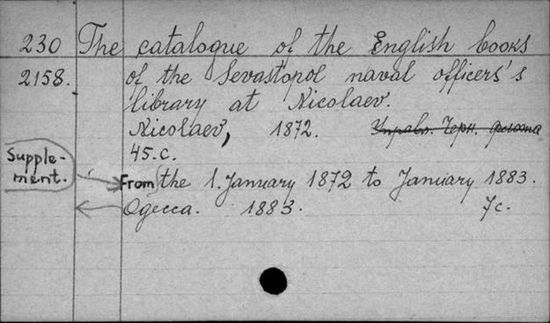 230 The catalogue of the English books
2158. of the Sevastopol naval officers's
library at Nicolaev.
Nicolaev, 1872. Управ. Черн. флота
45.c.
Supple-
ment.
From the 1. January 1872 to January 1883.
Одесса. 1883. 7c.